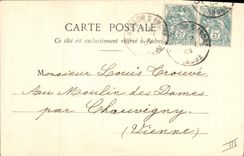 CARTE POSTALE
Ce côté est exclusivement réservé à l'adresse
Monsieur Louis Trouvé
Au Moulin des Dames
par Chauvigny
(Vienne)
III